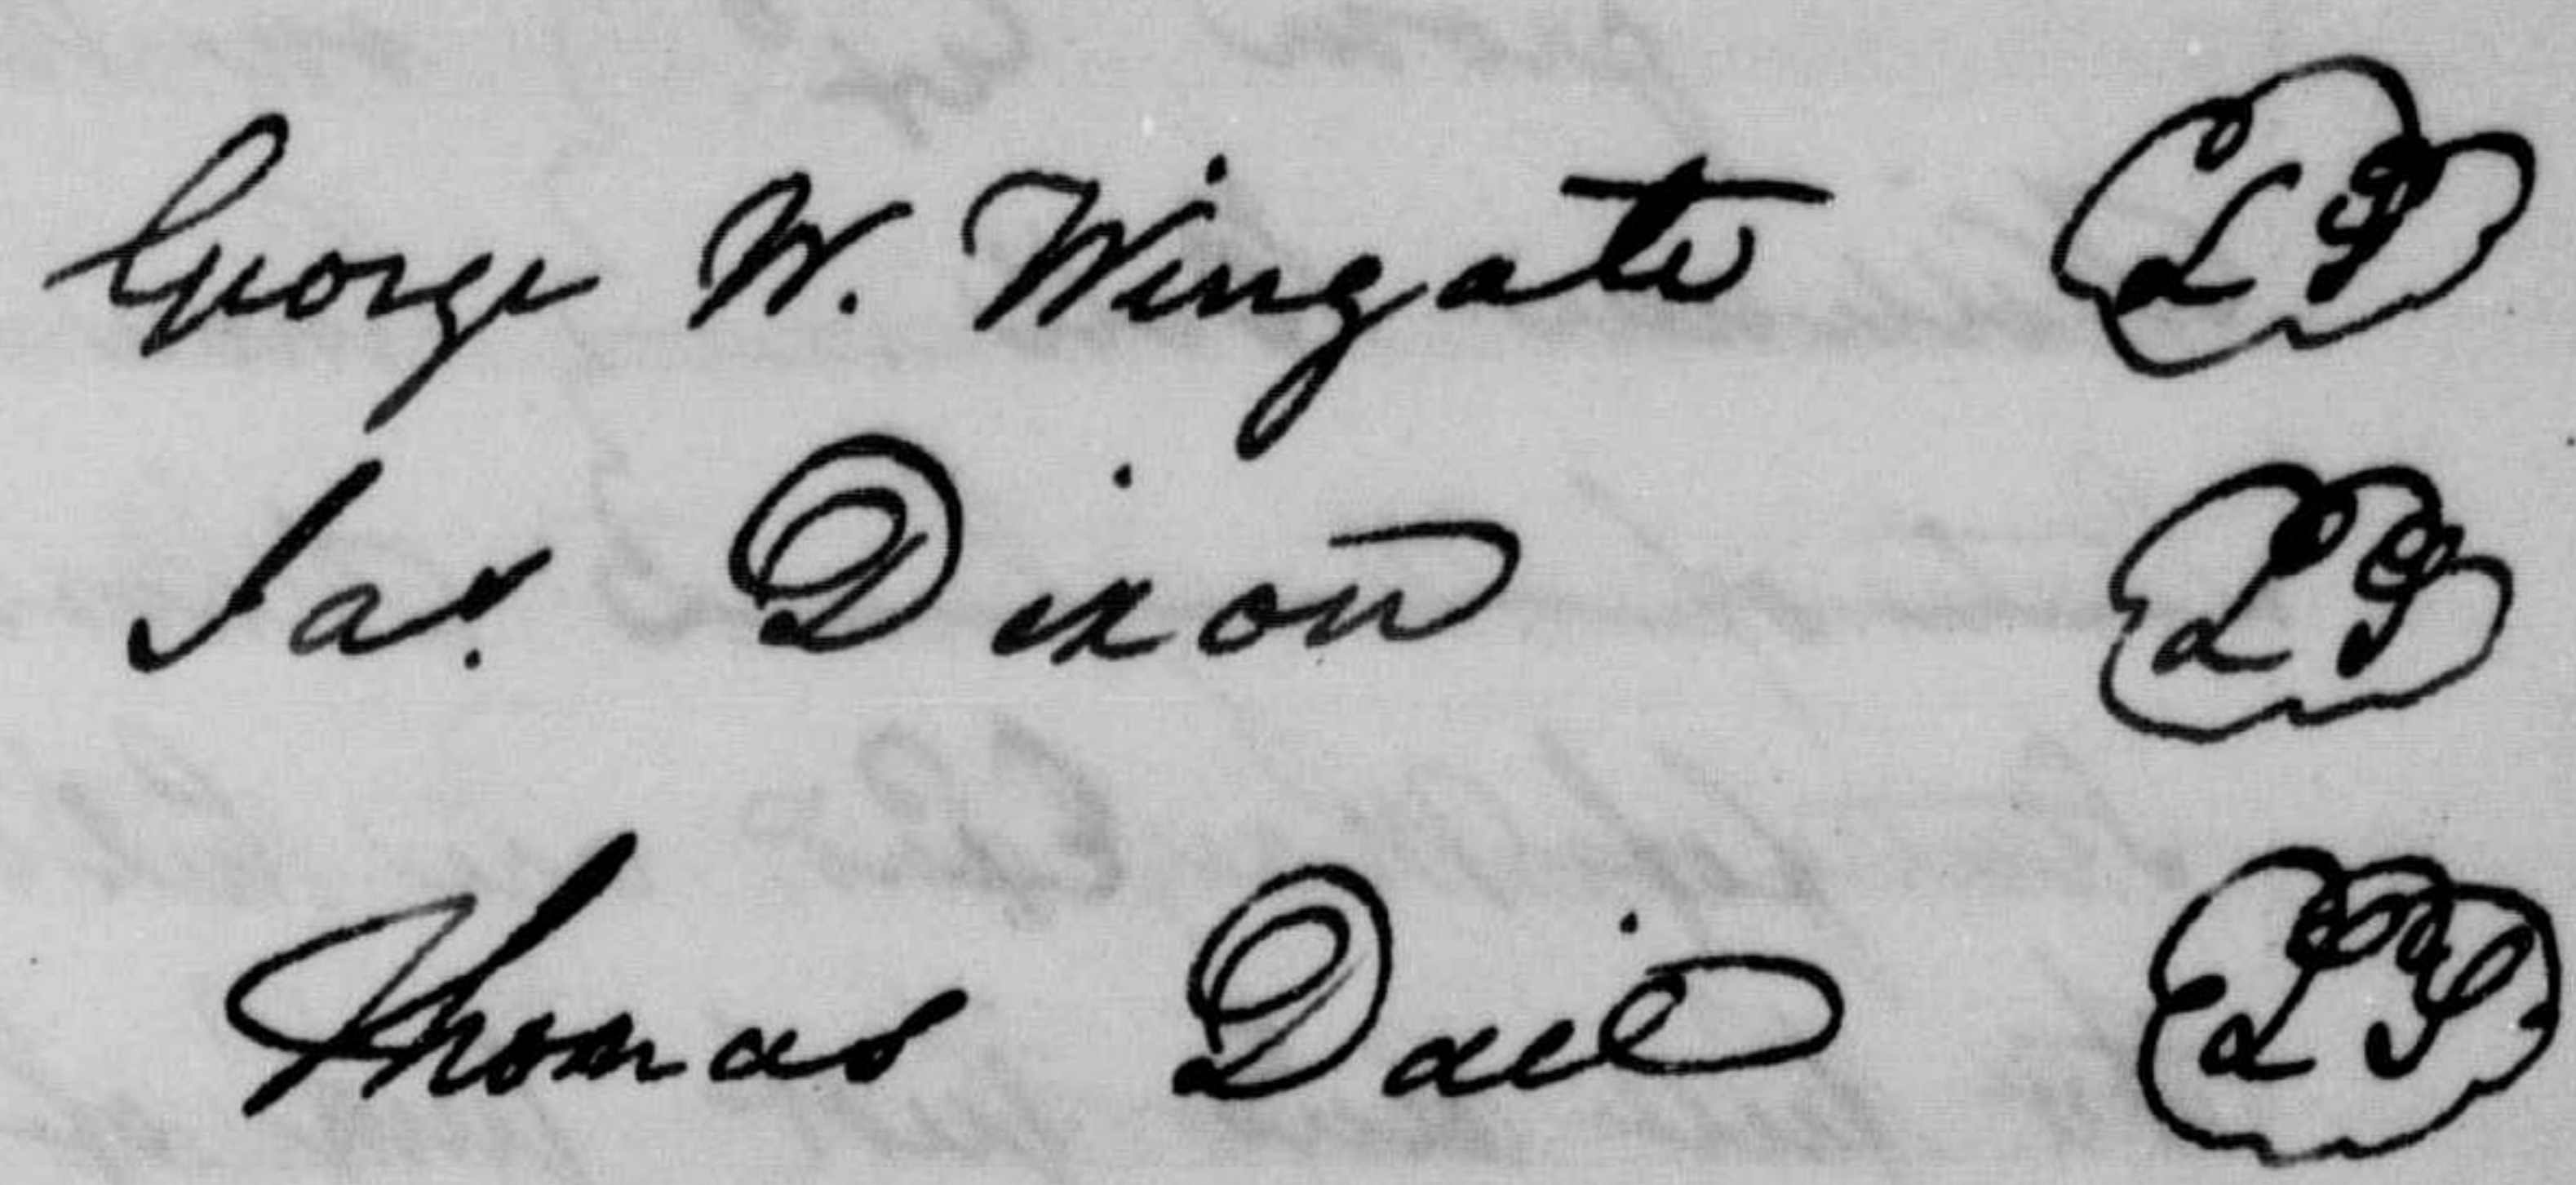 George W. Wingate L S
Jas. Dixon L S
Thomas Dail L S